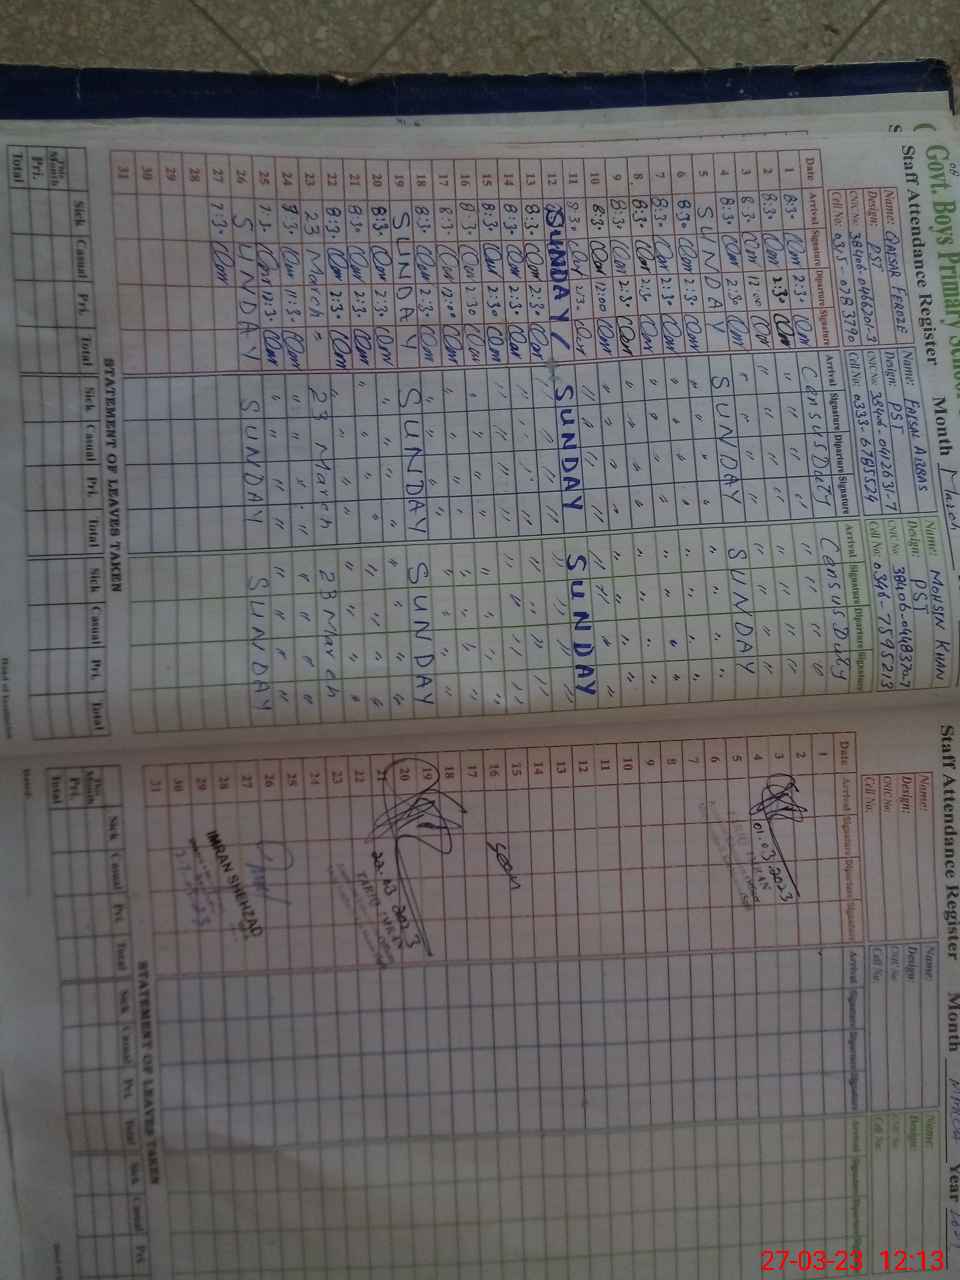 Govt. Boys Primary School
Staff Attendance Register Month March
Name: QAISAR FEROZE
Design: PST
CNIC No: 38406-0466201-3
Cell No: 0315-0783790
Name: FAISAL ABBAS
Design: PST
CNIC No: 38406-0412631-7
Cell No: 0333-6785524
Name: MOHSIN KHAN
Design: PST
CNIC No: 38406-0448370-7
Cell No: 0346-7595213
Date Arrival Signature Diparture Signature Arrival Signature Diparture Signature Arrival Signature Diparture Signature
1 8:3. 2:3. Census Duty Census Duty
2 8:3. 2:3. " " " " " " " "
3 8:3. 12:00 " " " " " " " "
4 8:3. 2:3. " " " " " " " "
5 SUNDAY SUNDAY SUNDAY
6 8:3. 2:3. " " " " " " " "
7 8:3. 2:3. " " " " " " " "
8 8:3. 2:3. " " " " " " " "
9 8:3. 2:3. " " " " " " " "
10 8:3. 12:00 " " " " " " " "
11 8:3. 2:3. " " " " " " " "
12 SUNDAY SUNDAY SUNDAY
13 8:3. 2:3. " " " " " " " "
14 8:3. 2:3. " " " " " " " "
15 8:3. 2:3. " " " " " " " "
16 8:3. 2:30 " " " " " " " "
17 8:3. 12:00 " " " " " " " "
18 8:3. 2:3. " " " " " " " "
19 SUNDAY SUNDAY SUNDAY
20 8:3. 2:3. " " " " " " " "
21 8:3. 2:3. " " " " " " " "
22 8:3. 2:3. " " " " " " " "
23 23 March 23 March 23 March
24 7:3. 11:3. " " " " " " " "
25 7:3. 12:3. " " " " " " " "
26 SUNDAY SUNDAY SUNDAY
27 7:3.
28
29
30
31
STATEMENT OF LEAVES TAKEN
Sick Casual Pri. Total Sick Casual Pri. Total Sick Casual Pri. Total
Month
Pri.
Total
Staff Attendance Register Month MARCH Year
Name:
Design:
CNIC No:
Cell No:
Name:
Design:
CNIC No:
Cell No:
Name:
Design:
CNIC No:
Cell No:
Date Arrival Signature Diparture Signature Arrival Signature Diparture Signature Arrival Signature Diparture Signature
1
2
3
4 01.03.2023
5
6
7
8
9
10
11
12
13
14
15
16 seen
17
18
19
20
21
22
23
24
25
26
27
28
29 IMRAN SHEHZAD
30
31
STATEMENT OF LEAVES TAKEN
Sick Casual Pri. Total Sick Casual Pri. Total Sick Casual Pri.
Month
Pri.
Total
27-03-23 12:13